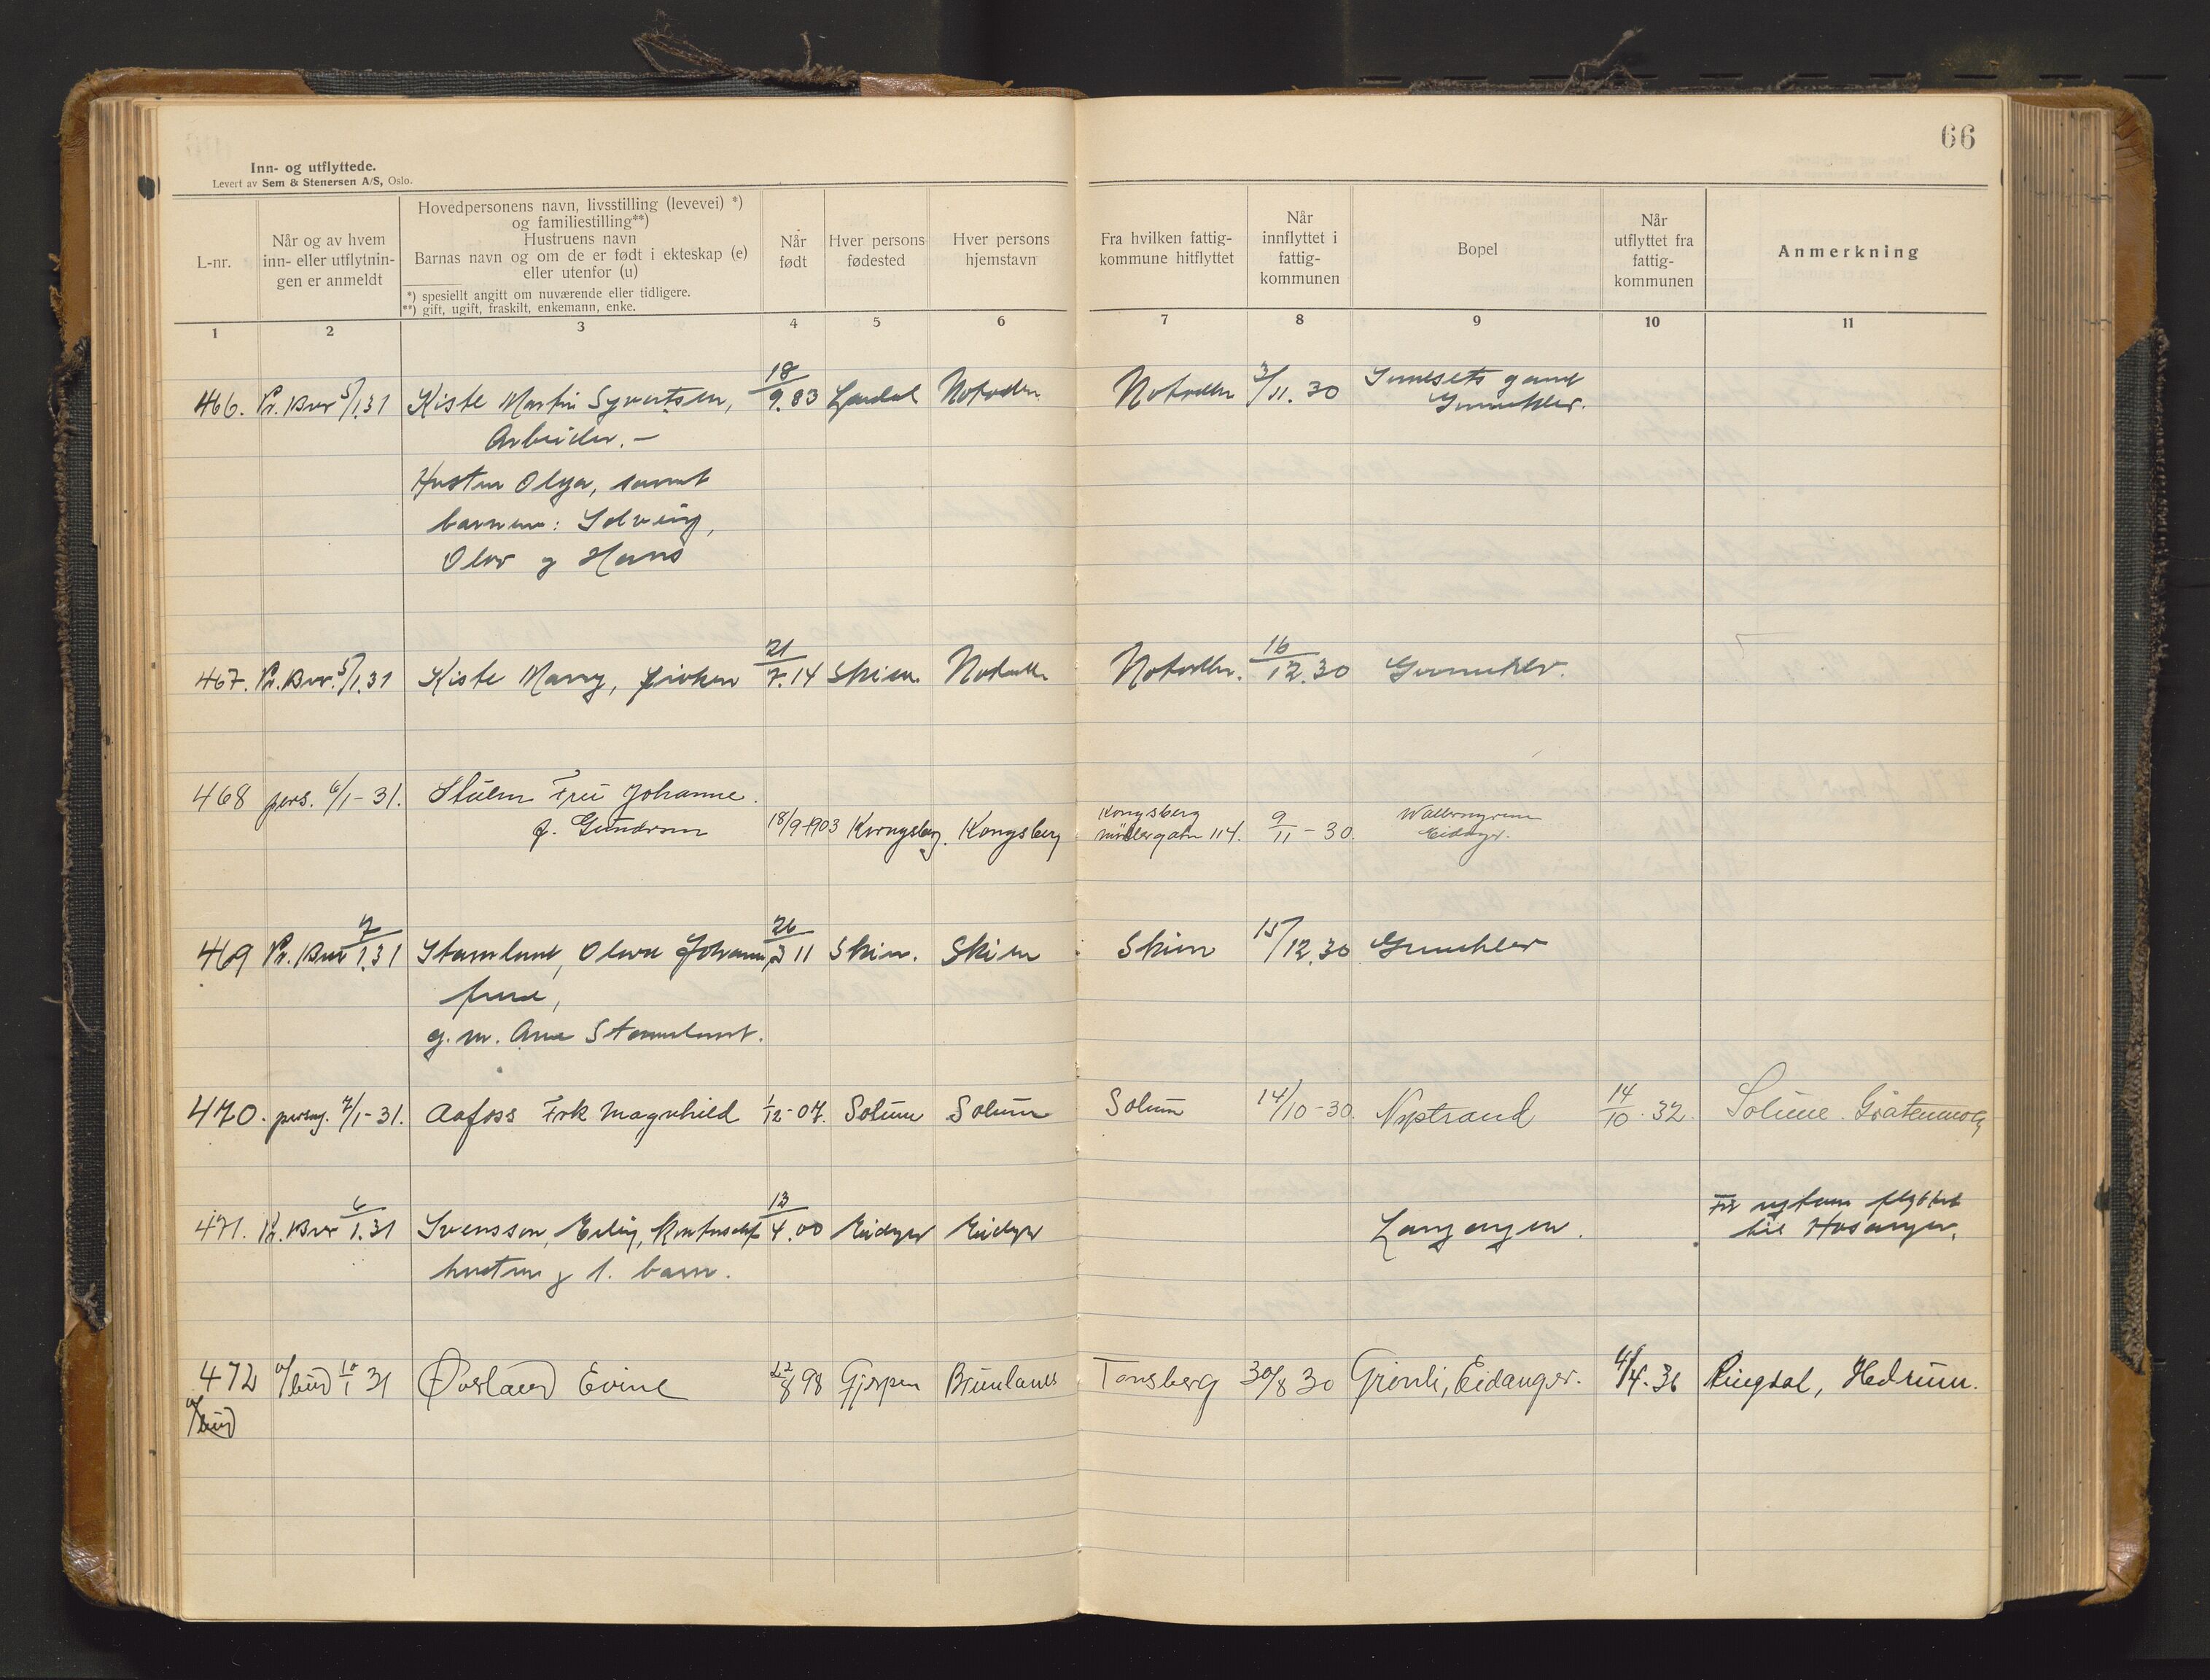 66
Inn- og utflyttede.
Levert av Sem & Stenersen A/S, Oslo.
L-nr.
Når og av hvem inn- eller utflytnin- gen er anmeldt
Hovedpersonens navn, livsstilling (levevei) *)
og familiestilling**)
Hustruens navn
Barnas navn og om de er født i ekteskap (e)
eller utenfor (u)
*) spesiellt angitt om nuværende eller tidligere.
**) gift, ugift, fraskilt, enkemann, enke.
Når født
Hver persons fødested
Hver persons hjemstavn
Fra hvilken fattig- kommune hitflyttet
Når innflyttet i fattig- kommunen
Bopel
Når utflyttet fra fattig- kommunen
Anmerkning
1 2 3 4 5 6 7 8 9 10 11
466. Pr. Brev 5/1.31 Kiste Martin Syvertsen, 18/9.83 Notodden Notodden 3/11.30
Arbeider. –
Hustru Olga, samt
barnene: Solveig,
Olav og Hans
467. Pr. Brev. 5/1.31 Kiste Marry, frøken 21/7.14 Skien. Notodden Notodden. 16/12.30
468 pers. 6/1-31. Fru Johanne.
f. 18/9-1903 Kongsberg. Kongsberg Kongsberg 114. 9/11-30. Eidngr.
469 Pr. Brev 7/1.31 Olava 26/3 11 Skien. Skien Skien 15/12.30
frue,
g. m.
470. 7/1-31. Aafoss Frk Magnhild 1/12-07. Solum Solum Solum 14/10-30. Nystrand 14/10.32 Solum.
471. Pr. Brev 6/1.31 Svensson, Erling, 13/4.00 Eidanger Eidanger Langangen. flyttet
hustru og 1. barn. til
472 a/bud 10/1 31 Øverland Evine 22/8 98 Gjerpen Brunlanes Tønsberg 30/8 30 Grinli, Eidanger. 4/4.36 Ringdal, Hedrum.
a/bud